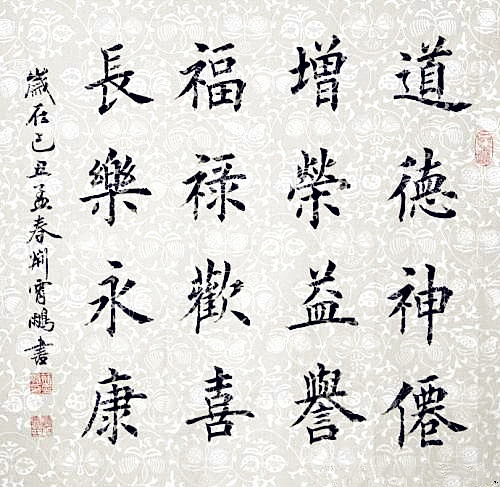 道德神僊
增榮益譽
福祿歡喜
長樂永康
歲在己丑孟春荆霄鵬書